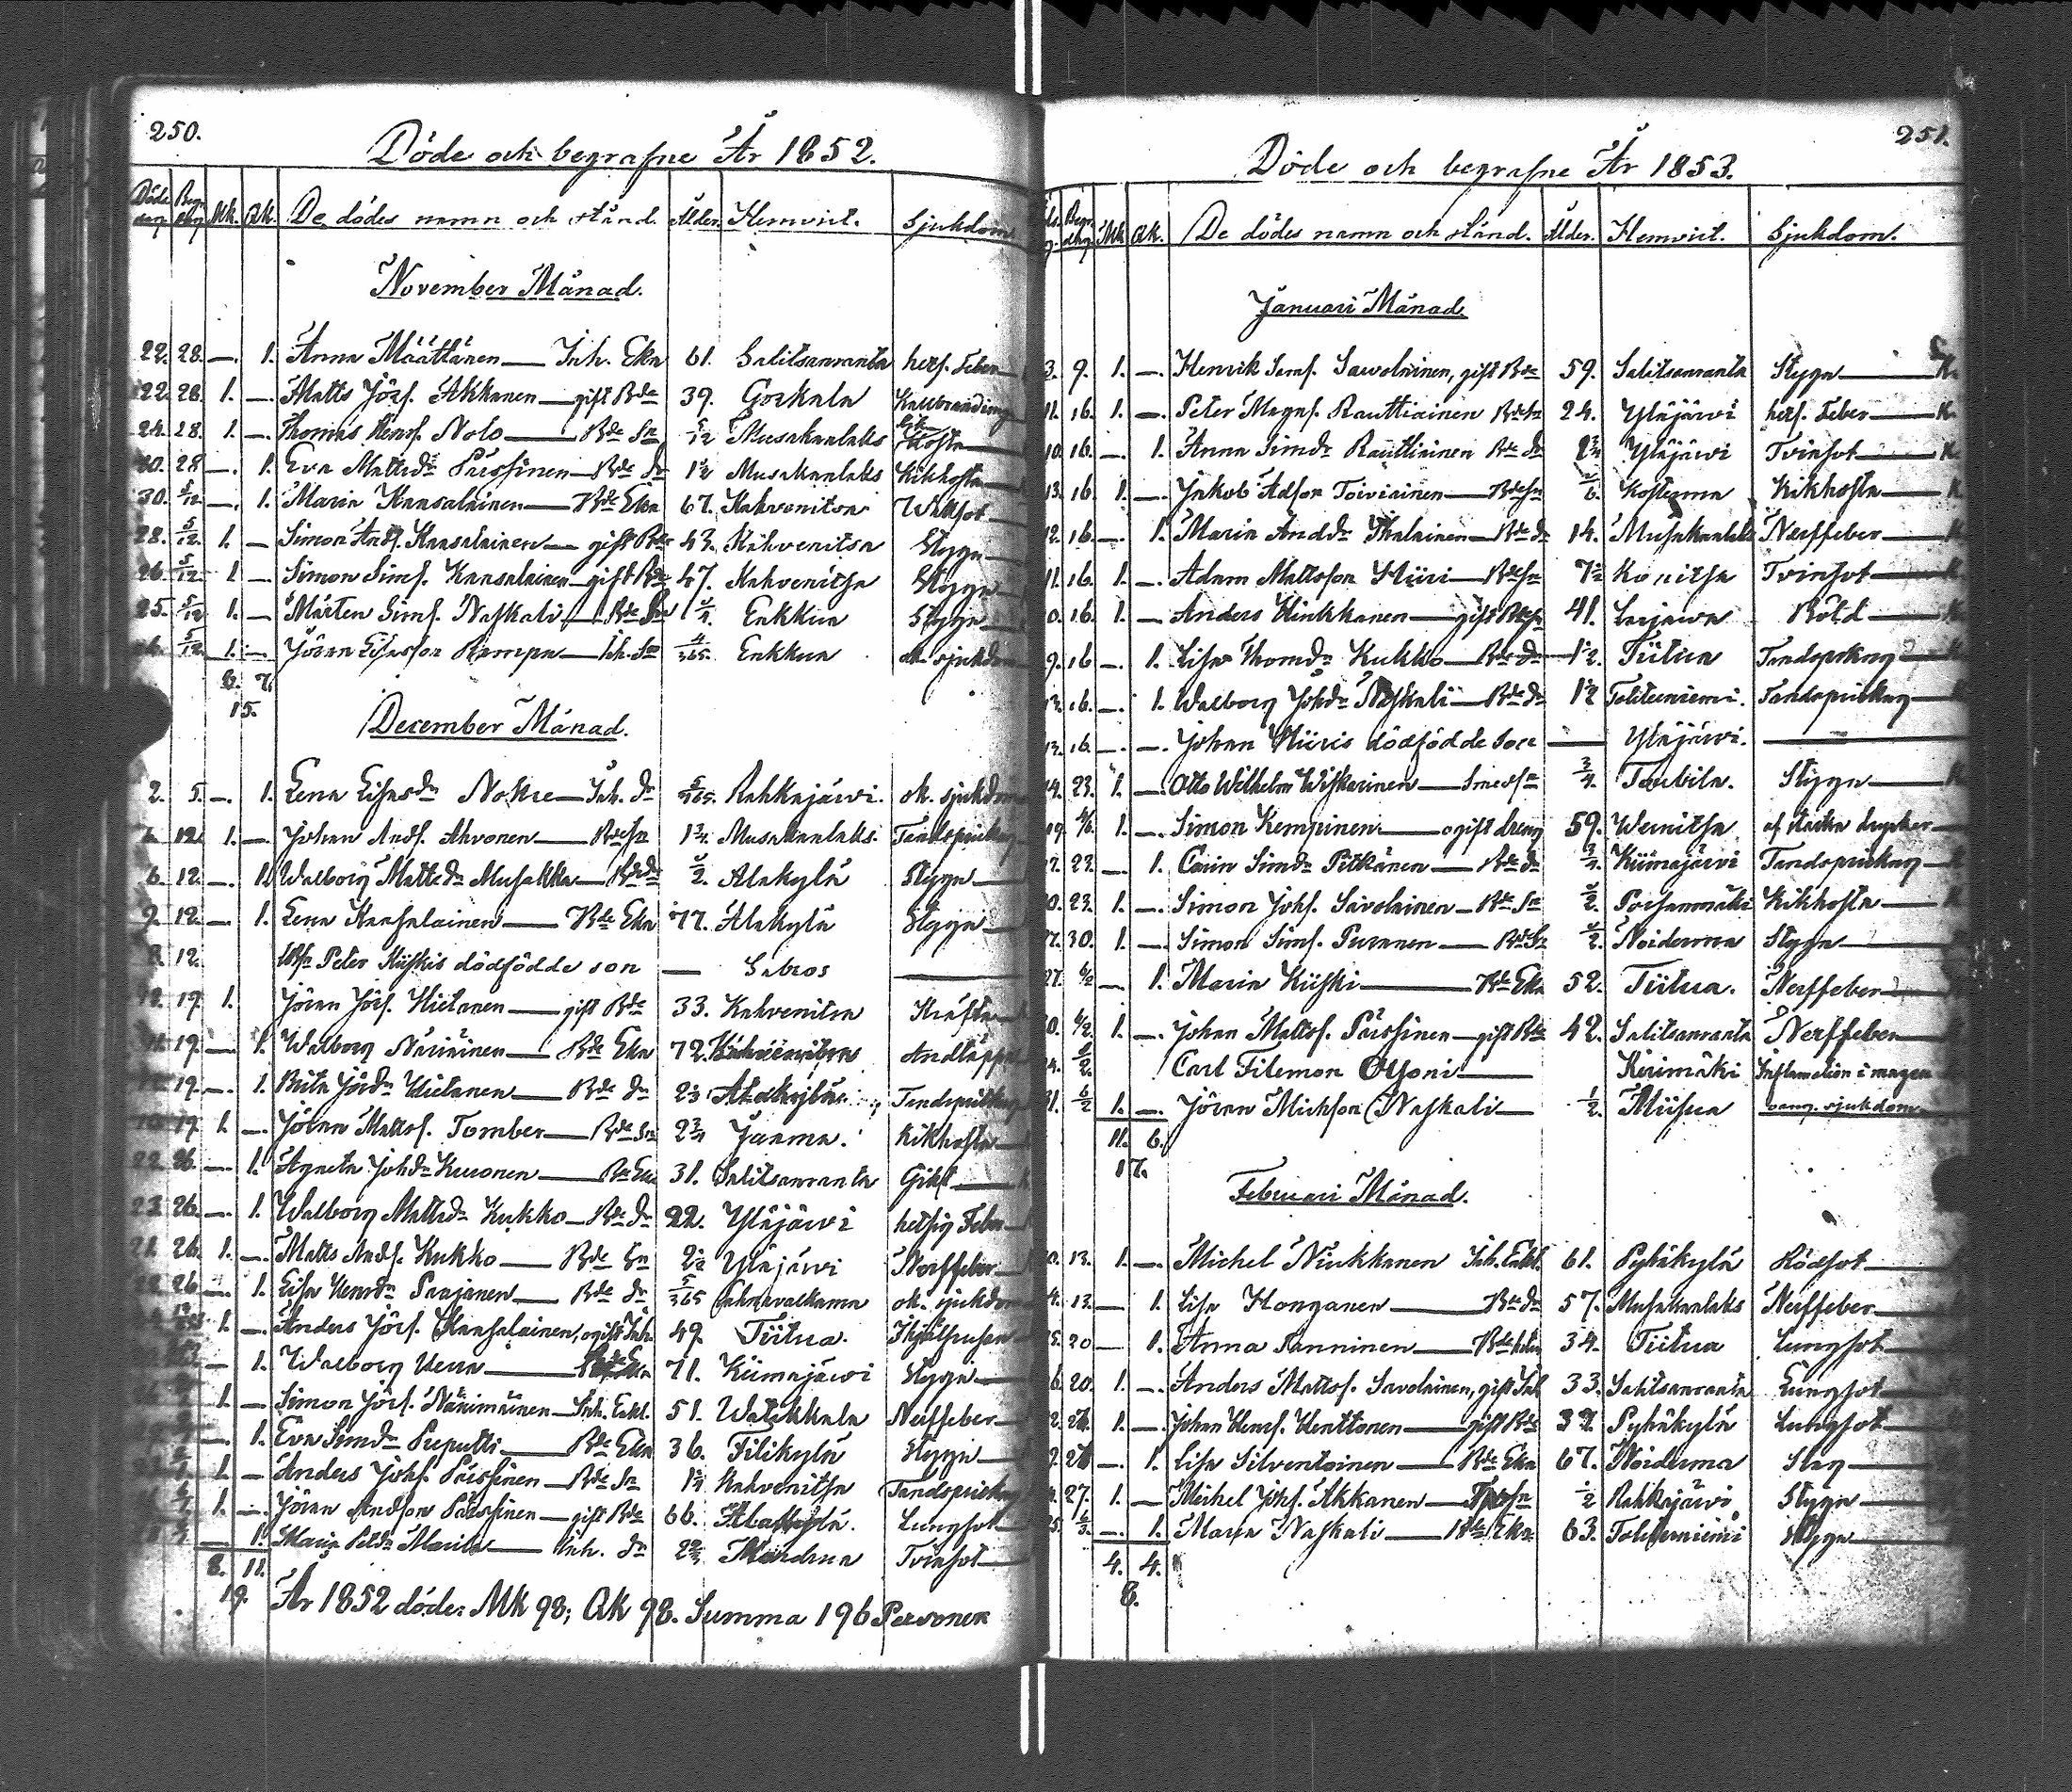 250.
Döde och begrafne År 1852.
Döde dag Begr. dag Mk. Qk. De dödes namn och stånd. Ålder. Hemvist. Sjukdom
November Månad.
22. 28. —. 1. Anna Määttänen — Inh. Eka 61. Salitsanranta hets. Feber
22. 28. 1. —. Matts Jörs. Akkanen — gift Bde 39. Gorkala Kallbrand
24. 28. 1. —. Thomas Henrs. Nolo — Bde Sn 5/12 Musakanlaks Hosta
28 —. 1. Eva Mattsdr Pässinen — Bde dr 1½ Musakanlaks Kikhosta
30. 5/12 —. 1. Maria Kansalainen — Bde Eka 67. Kahvenitsa Wattsot
28. 5/12. 1. — Simon Ands. Kansalainen — gift Bde 43. Kahvenitsa Stygn
26. 5/12. 1 — Simon Sims. Kansalainen — gift Bde 47. Kahvenitsa Stygn
25. 5/12 1. — Mårten Sims. Naskali — Bde Sn Enkkua Stygn
26. 5/12. 1. — Jöran Eliasson Rämpä — Inh. Sn 4/365. Enkkua ok. sjukdom
8. 7.
15.
December Månad.
2. 5. —. 1. Lena Elisasdr Nokne — Inh. dr 5/365. Rahkajärwi. ok. sjukdom
12. 1. —. Johan Ands. Ahvonen — Bde Sn 1¾ Musakanlaks. Tandsprickng
6. 12. —. 1. Walborg Mattsdr Musakka — Bde dr ½. Alakylä Stygn
9. 12. — 1. Lena Kansalainen — Bde Eka 77. Alakylä Stygn
8. 12. Peter Kiiskis dödfödde son — Sakros —
19. 1. Jöran Jörs. Hietanen — gift Bde 33. Kahvenitsa Kräfta
19. —. 1. Walborg Näriäinen — Bde Eka 72. Kahvenitsa Andtäppa
19. —. 1. Brita Jörsdr Hietanen — Bde dr 2¾ Alakylä Tandsprickng
19. 1. —. Jöran Mattss. Tomber — Bde Sn 2¾ Jaama. Kikhosta
22. 26. —. 1. Agneta Johdr Kuronen — Bde Eka 31. Salitsanranta Gikt
23. 26. —. 1. Walborg Mattsdr Kukko — Bde dr 22. Yläjärwi hetsig Feber
21. 26. 1. —. Matts Ands. Kukko — Bde Sn 2½ Yläjärwi Nerffeber
26 —. 1. Lisa Henrsdr Paajanen — Bde dr 5/365 ok. sjukdom
1. —. Anders Jörs. Kansalainen, ogift Inh. 49. Tiitua.
— 1. Walborg — Eka 71. Kiimajärwi Stygn
1. — Simon Jörs. Närimäinen — Inh. Enkl. 51. Watakkala Nerffeber
—. 1. Eva Simdr Pieputti — Bde Eka 36. Filikylä Stygn
1. — Anders Johs. Pässinen — Bde Sn Kahvenitsa Tandsprickng
1. —. Jöran Andson Pässinen — gift Bde 66. Alakylä. Lungsot
— 1. Maria Petdr — Inh. dr Tvinsot
8. 11.
19. År 1852 döde: Mk 98; Qk 98. Summa 196 Personer
251.
Döde och begrafne År 1853.
Begr. dag Mk Qk. De dödes namn och stånd. Ålder. Hemvist. Sjukdom.
Januari Månad.
3. 9. 1. —. Henrik Sims. Sawolainen, gift Bde 59. Salitsanranta Stygn
11. 16. 1. —. Peter Magns. Rauttiainen Bde Sn 24. Yläjärwi hets. Feber
10. 16. — 1. Anna Simdr Rauttiainen Bde dr 2¾ Yläjärwi Tvinsot
13. 16 1. —. Jakob Adson Toiviainen — Bde Sn Kosterma Kikhosta
12. 16. — 1. Maria Anddr Ikalainen — Bde dr 14. Musakanlaks Nerffeber
11. 16. 1. —. Adam Mattsson Hiiri — Bde Sn 7½ Konitsa Tvinsot
16. 1 — Anders Hinkkanen — gift Bde 41. Larjawa Röld
9. 16 —. 1. Lisa Thomdr Kukko — Bde dr 1½. Tiitua Tandsprickng
16. —. 1. Walborg Johdr Naskali — Bde dr 1½ Toliteeniemi. Tandsprickng
16. —. —. Johan Hiiris dödfödde son — Yläjärwi. —
14. 23. 1. —. Otto Wilhelm Wiskarinen — Smeds Sn ¾. Toubila. Stygn
19. 1. —. Simon Kempinen — ogift dreng 59. Wernitsa af starka drycker
23. — 1. Carin Simdr Pitkänen — Bde dr ¾. Kiimajärwi Tandsprickng
23. 1. —. Simon Johs. Savolainen — Bde Sn ½. Porsanmäki Kikhosta
30. 1. —. Simon Sims. Puranen — Bde Sn ½. Noiderma Stygn
27. 6/2 — 1. Maria Kiiski — Bde Eka 52. Tiitua. Nerffeber
6/2. 1. —. Johan Mattss. Pässinen — gift Bde 42. Salitsanranta Nerffeber
6/2. Carl Filemon Olloni — Kirimäki Inflamation i magen
31. 6/2 1. —. Jöran Michson Naskali — ½. Miisua sjukdom
11. 6.
17.
Februari Månad.
13. 1. —. Michel Niukkanen Inh. Enkl. 61. Pyhäkylä Rödsot
13. — 1. Lisa Honganen — Bde dr 57. Musakanlaks Nerffeber
20 — 1. Anna Tanninen — Bde 34. Tiitua Lungsot
20. 1. —. Anders Mattss. Savolainen, gift Inh 33. Salitsanranta Lungsot
1. —. Johan Henrs. Henttonen — gift Bde Pyhäkylä Lungsot
—. 1. Lisa Silventoinen — Bde Eka 67. Noiderma Stng
27. 1. — Michel Johs. Akkanen — ½ Rahkajärwi Stygn
6/3. —. 1. Maria Naskali — Bde Eka 63. Toliteeniemi Stygn
4. 4.
8.